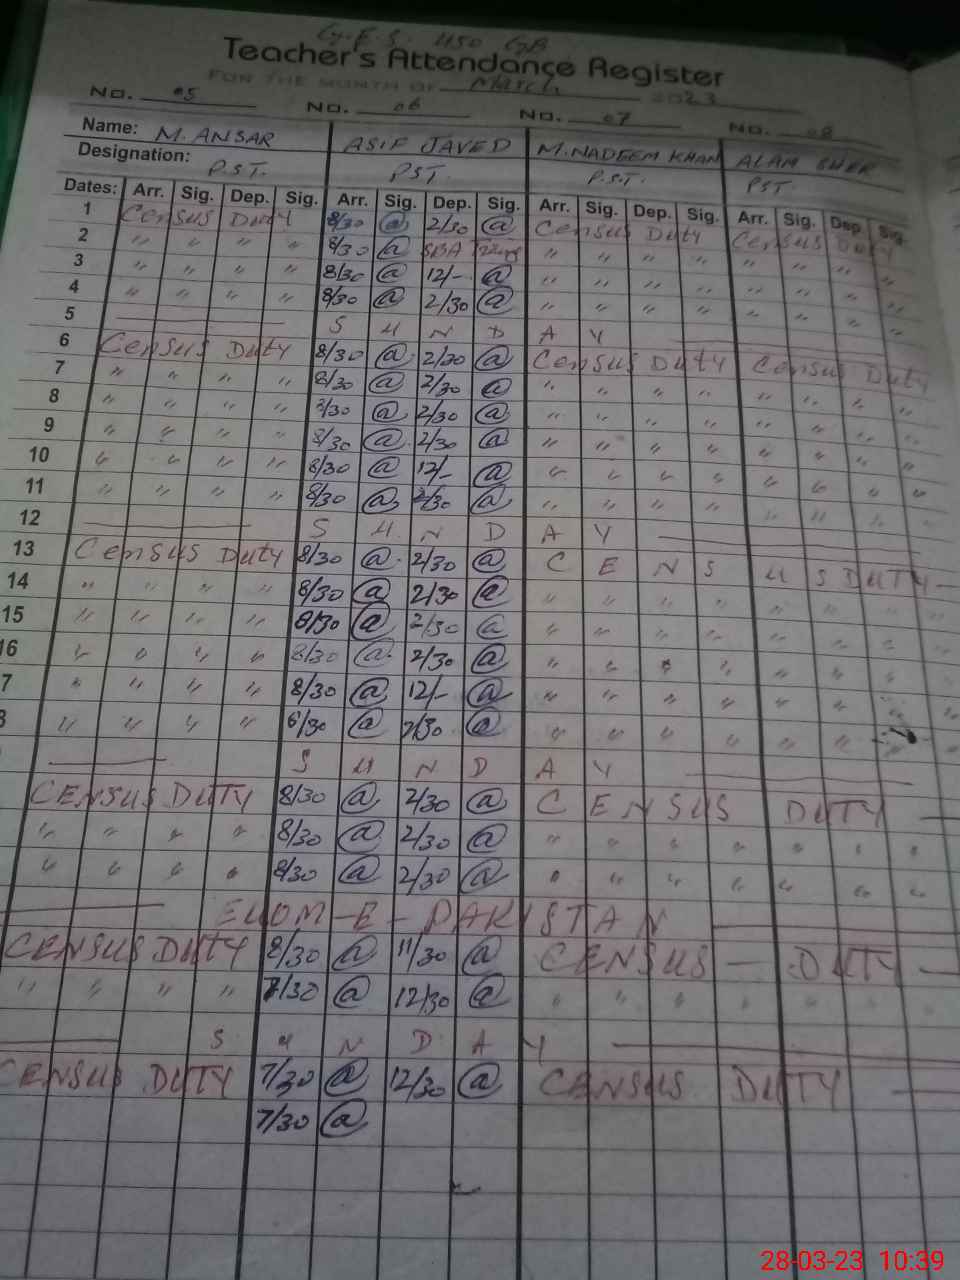 G.E.S. 450 GB
Teacher's Attendance Register
FOR THE MONTH OF March 2023
No. 05 No. 06 No. 07 No. 08
Name: M. ANSAR ASIF JAVED M.NADEEM KHAN ALAM SHER
Designation: P.S.T. PST. P.S.T. PST.
Dates: Arr. Sig. Dep. Sig. Arr. Sig. Dep. Sig. Arr. Sig. Dep. Sig. Arr. Sig. Dep. Sig.
1 Census Duty 8/30 @ 2/30 @ Census Duty Census Duty
2 " " " " 8/30 @ SBA " " " " " " " "
3 " " " " 8/30 @ 12/- @ " " " " " " " "
4 " " " " 8/30 @ 2/30 @ " " " " " " " "
5 S U N D A Y
6 Census Duty 8/30 @ 2/30 @ Census Duty Census Duty
7 " " " " 8/30 @ 2/30 @ " " " " " " " "
8 " " " " 8/30 @ 2/30 @ " " " " " " " "
9 " " " " 8/30 @ 2/30 @ " " " " " " " "
10 " " " " 8/30 @ 12/- @ " " " " " " " "
11 " " " " 8/30 @ 2/30 @ " " " " " " " "
12 S U N D A Y
13 Census Duty 8/30 @ 2/30 @ C E N S U S DUTY
14 " " " " 8/30 @ 2/30 @ " " " " " " " "
15 " " " " 8/30 @ 2/30 @ " " " " " " " "
16 " " " " 8/30 @ 2/30 @ " " " " " " " "
7 " " " " 8/30 @ 12/- @ " " " " " " " "
8 " " " " 8/30 @ 2/30 @ " " " " " " " "
S U N D A Y
CENSUS DUTY 8/30 @ 2/30 @ C E N S U S DUTY
" " " " 8/30 @ 2/30 @ " " " " " " " "
" " " " 8/30 @ 2/30 @ " " " " " " "
EUOM-E-PAKISTAN
CENSUS DUTY 8/30 @ 11/30 @ CENSUS - DUTY
" " " " 7/30 @ 12/30 @ " " " " " " "
S U N D A Y
CENSUS DUTY 7/30 @ 12/30 @ CENSUS DUTY
7/30 @
28-03-23 10:39